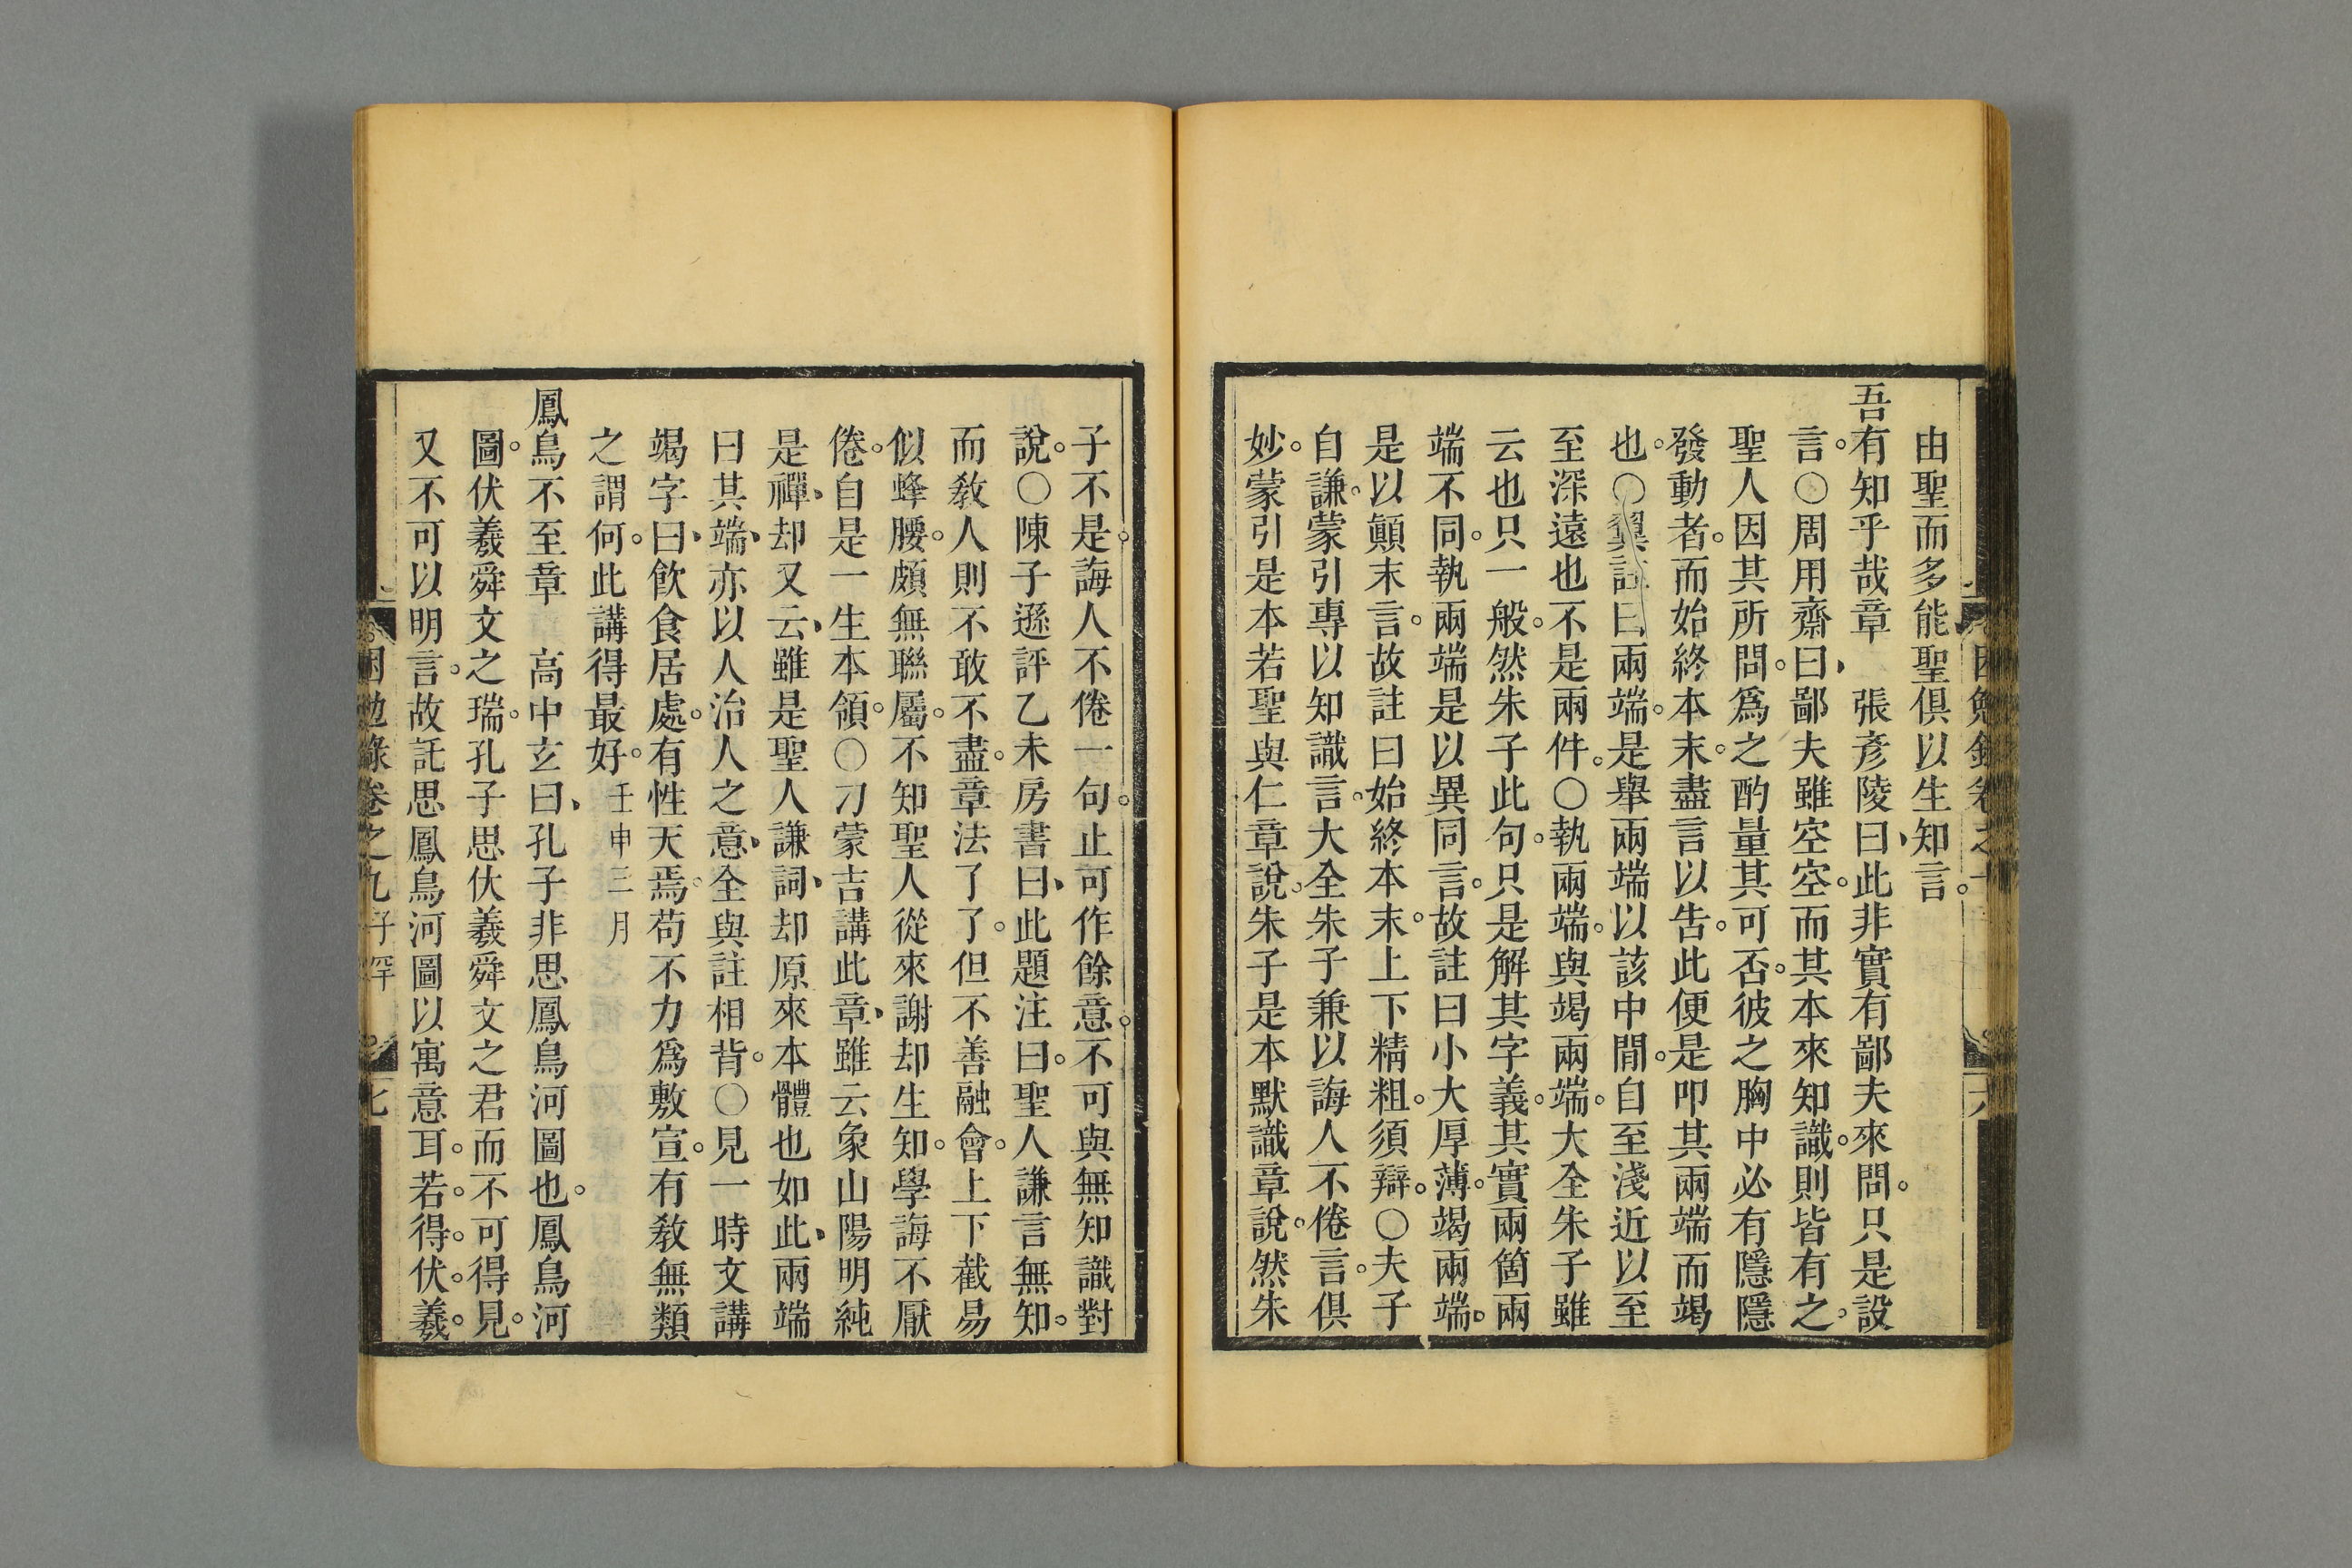 由聖而多能聖俱以生知言。
吾有知乎哉章　張彥陵曰、此非實有鄙夫來問。只是設
言。○周用齋曰、鄙夫雖空空。而其本來知識。則皆有之。
聖人因其所問。爲之酌量其可否。彼之胸中必有隱隱
發動者。而始終本末。盡言以告。此便是叩其兩端而竭
也。○翼註曰兩端。是舉兩端以該中間。自至淺近以至
至深遠也不是兩件。○執兩端。與竭兩端。大全朱子雖
云也只一般。然朱子此句。只是解其字義。其實兩箇兩
端不同。執兩端是以異同言。故註曰小大厚薄。竭兩端。
是以顛末言。故註曰始終本末。上下精粗。須辯。○夫子
自謙。蒙引專以知識言。大全朱子兼以誨人不倦言。俱
妙。蒙引是本若聖與仁章說。朱子是本默識章說。然朱
子不是。誨人不倦一句。止可作餘意。不可與無知識對
說。○陳子遜評乙未房書曰、此題注曰。聖人謙言無知。
而敎人則不敢不盡。章法了了。但不善融會。上下截易
似蜂腰。頗無聯屬。不知聖人從來謝却生知。學誨不厭
倦。自是一生本領。○刁蒙吉講此章、雖云象山陽明純
是禪、却又云、雖是聖人謙詞、却原來本體也如此、兩端
曰其端、亦以人治人之意、全與註相背。○見一時文講
竭字曰、飮食居處。有性天焉。苟不力爲敷宣。有敎無類
之謂何。此講得最好。壬申三月
鳳鳥不至章　高中玄曰、孔子非思鳳鳥河圖也。鳳鳥河
圖。伏羲舜文之瑞。孔子思伏羲舜文之君而不可得見。
又不可以明言。故託思鳳鳥河圖以寓意耳。若。得。伏。羲。
困勉錄卷之九 子罕 七